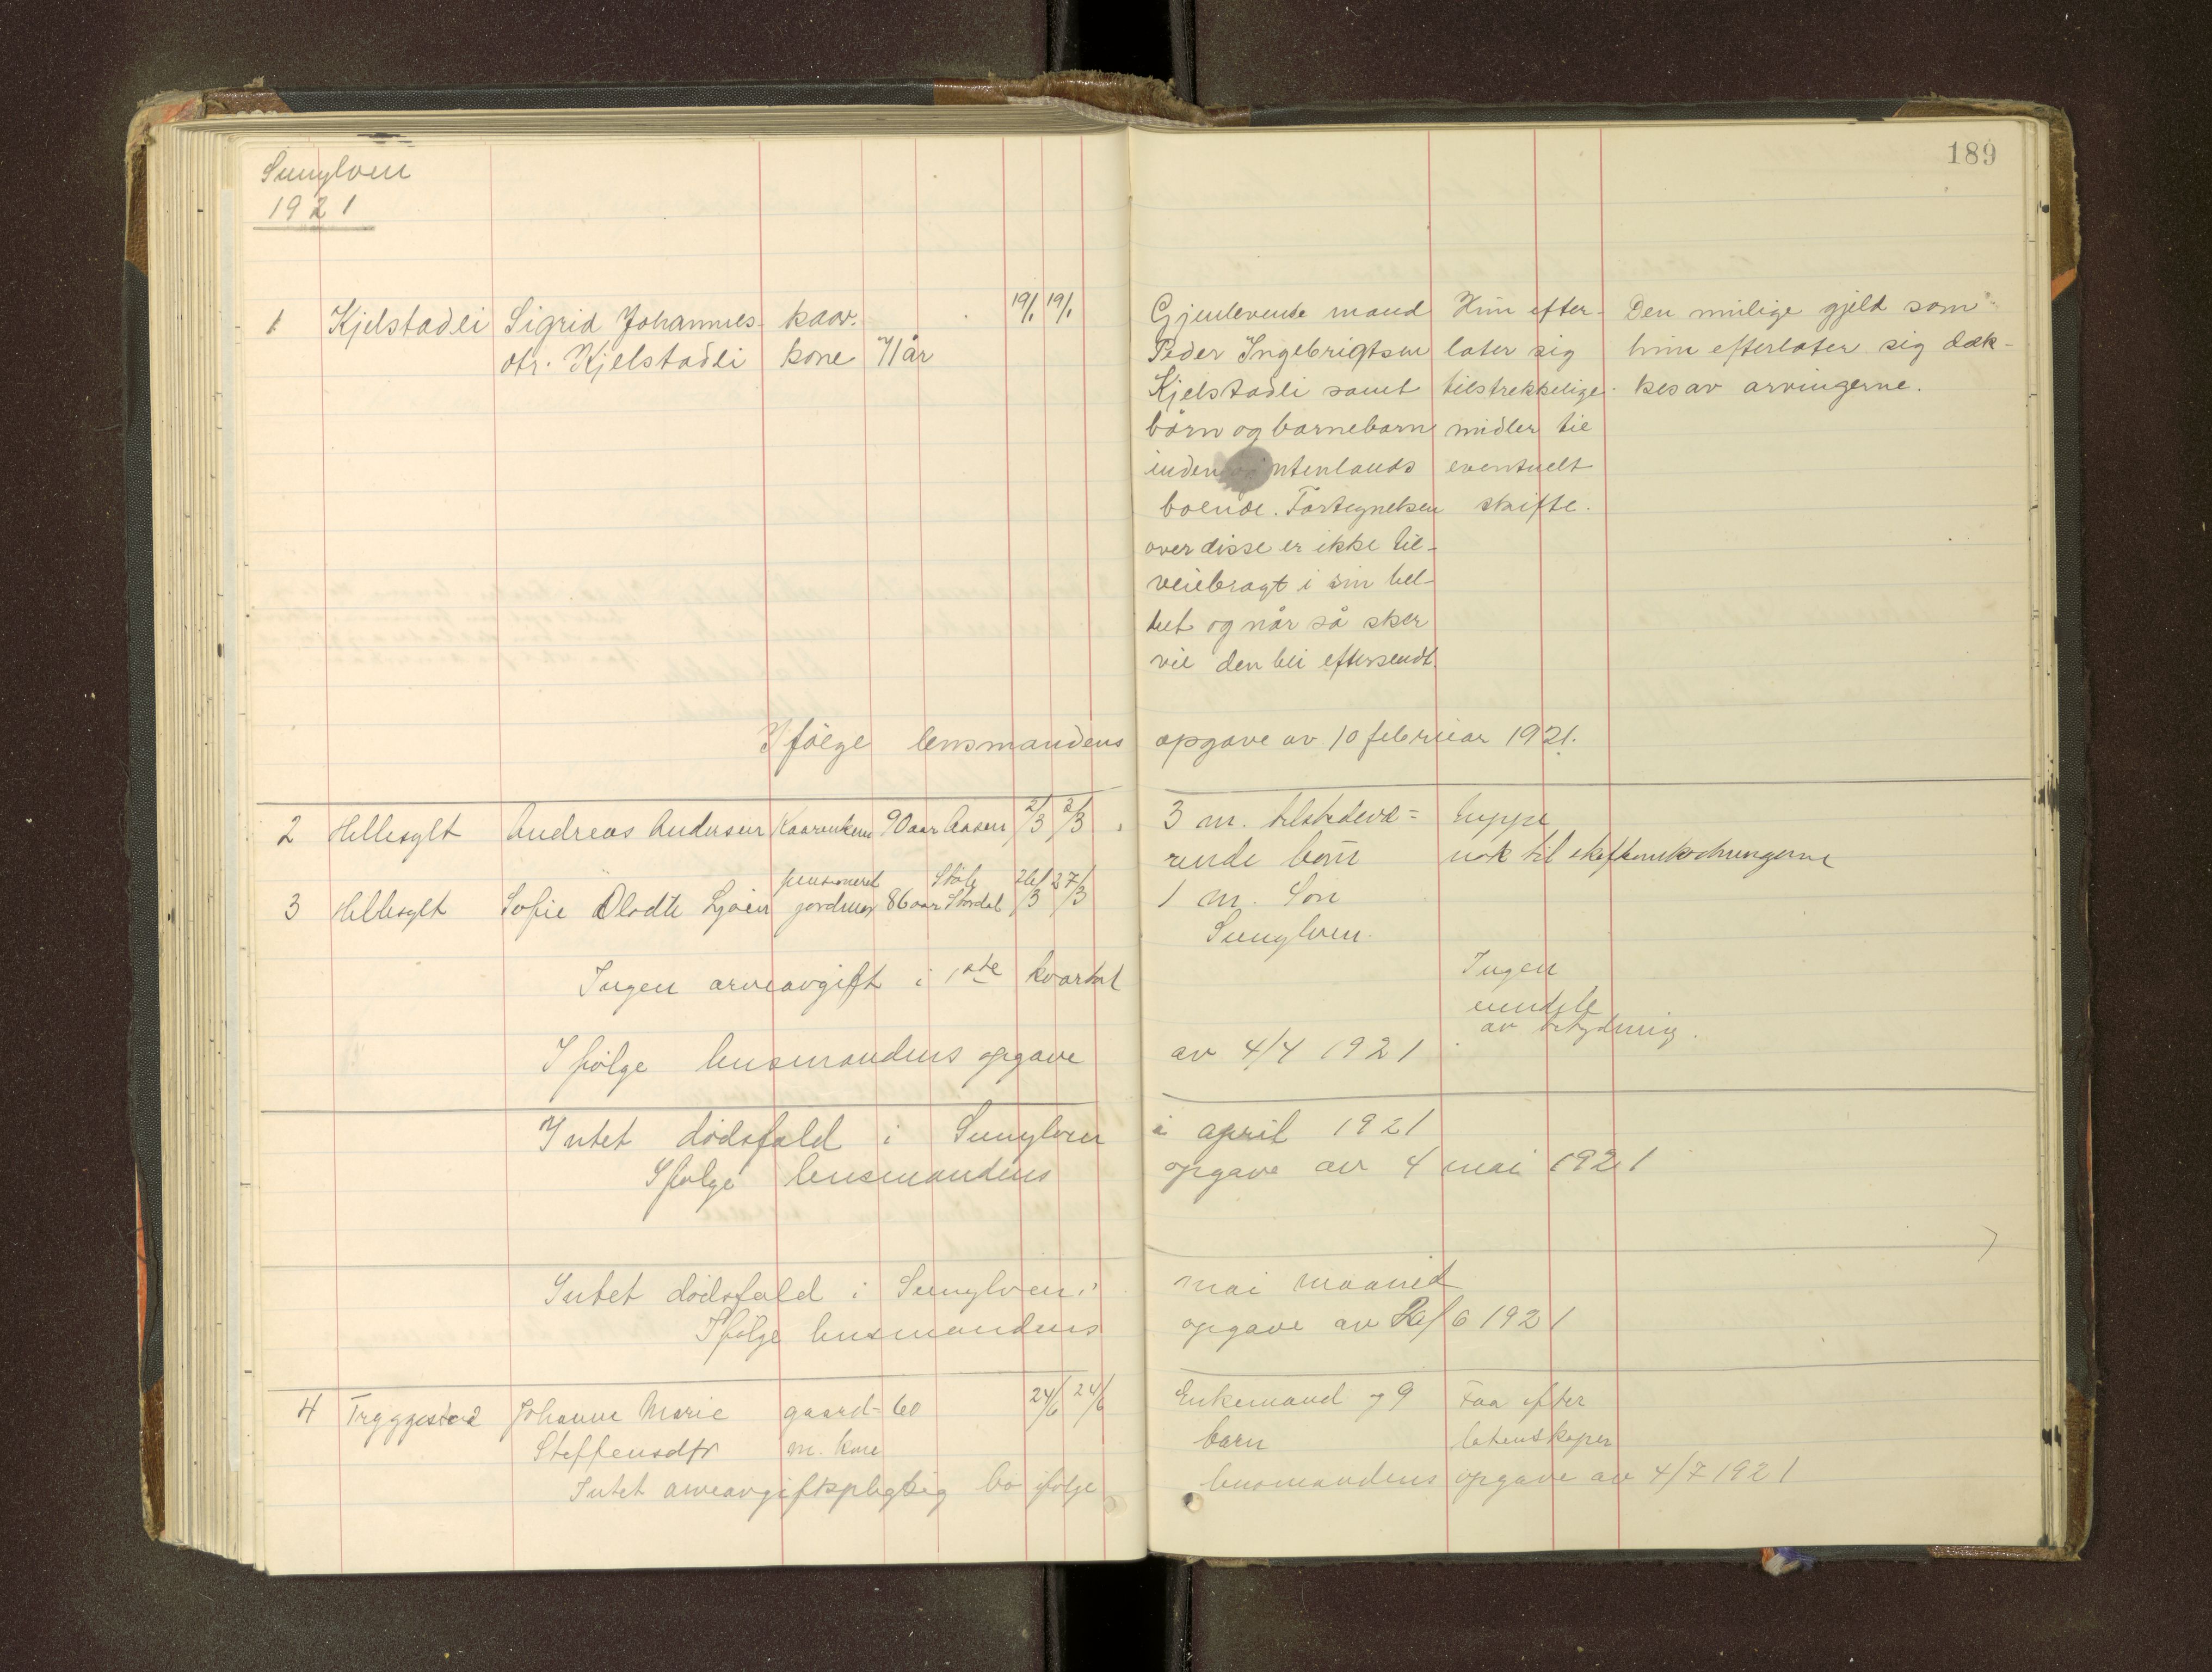 189
Sunylven
1921
1 Kjelstadli Sigrid Johannes- kaar. 19/1 19/1 Gjenlevende mand Hun efter- Den mulige gjeld som
otr. Kjelstadli kone 71 år Peder Ingebrigtsen later sig hun efterlater sig dæk-
Kjelstadli samt tilstrekkelige kes av arvingerne.
børn og barnebarn midler til
inden utenlands eventuelt
boende. Fortegnelsen skifte.
over disse er ikke til-
veiebragt i sin hel-
het og når så sker
vil den bli eftersendt
Ifølge lensmandens opgave av 10 februar 1921.
2 Hellesylt Andreas Andersen 90 aar Aasen 2/3 3/3 3 m. tilstedevæ=
rende børn nok til skifteomkostningerne
pensioneret 26/3 27/3
3 Hellesylt Sofie Olodte Ljøen jordmor 86 aar Stordal 1 m. Søn
Sunylven.
Ingen arveavgift i 1ste kvartal Ingen
eiendele
av betydning.
Ifølge lensmandens opgave av 4/4 1921
Intet dødsfald i Sunylven i april 1921
Ifølge lensmandens opgave av 4 mai 1921
Intet dødsfald i Sunylven i mai maaned
Ifølge lensmandens opgave av /6 1921
4 Tryggestad Johanne Marie gaard= 60 24/6 24/6 Enkemand og 9 Faa efter
Steffensdtr m. kone barn latenskaper
Intet arveavgiftspligtig bo ifølge lensmandens opgave av 4/7 1921